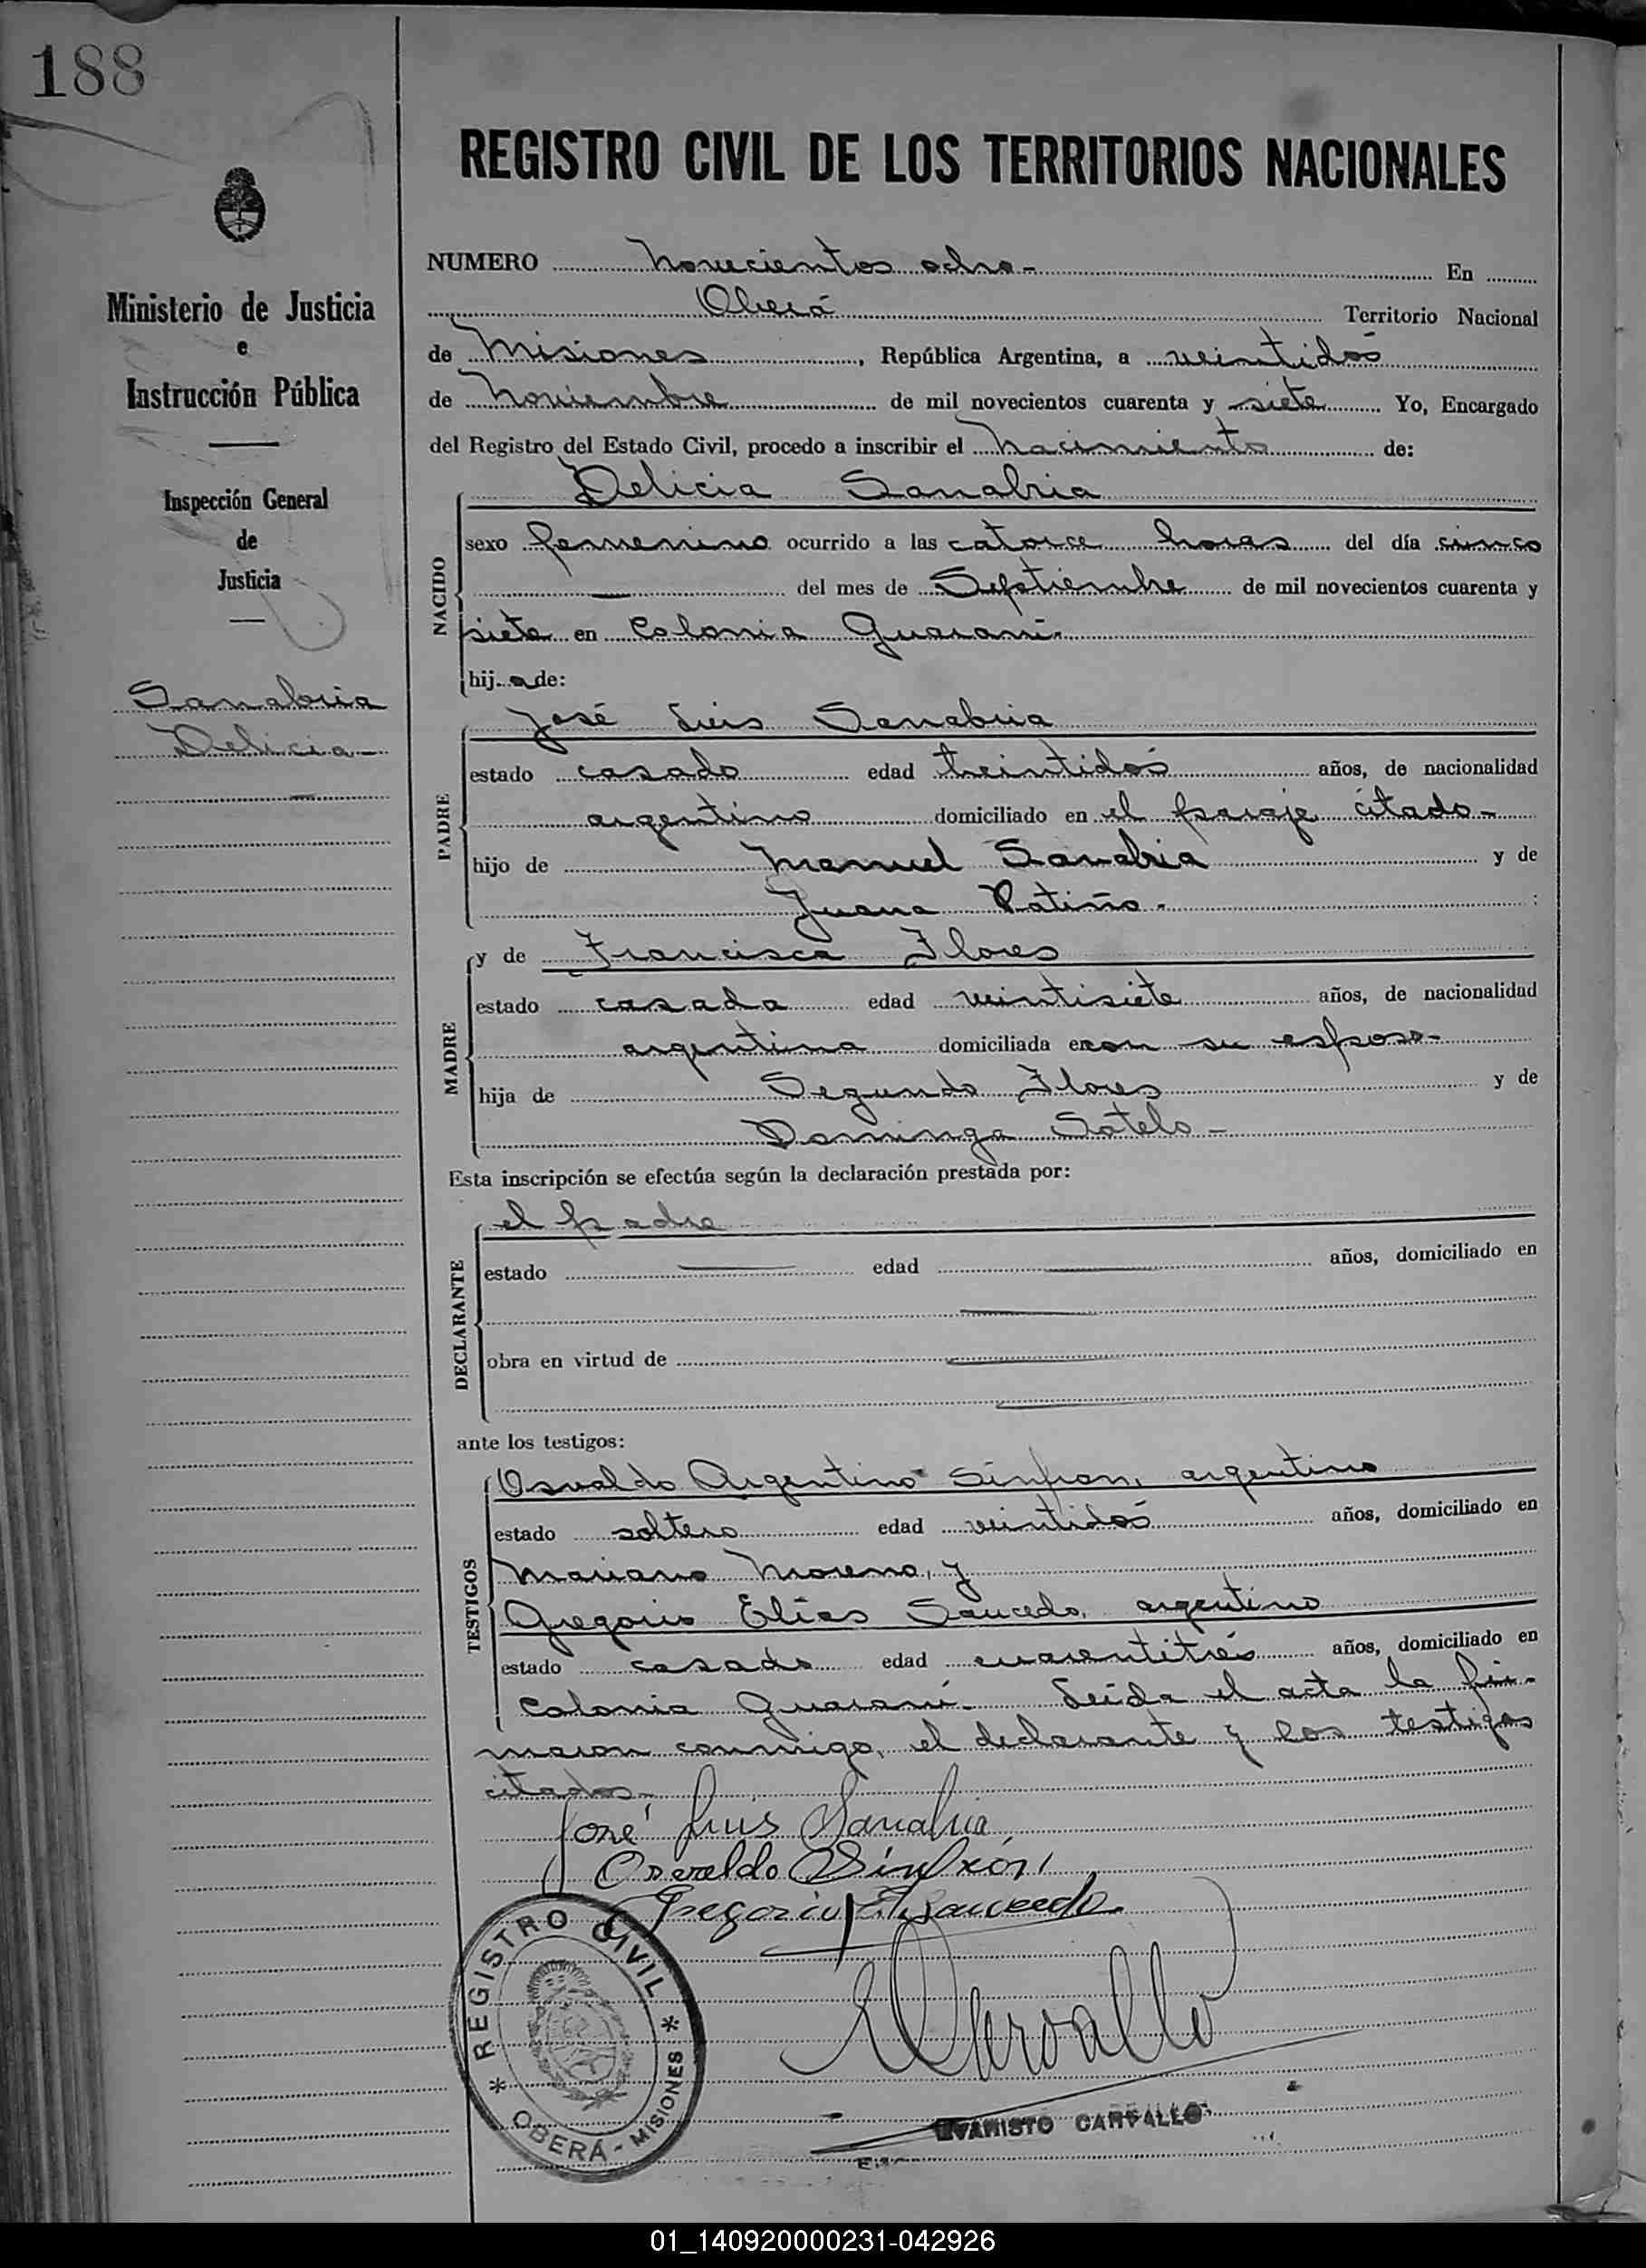 188
REGISTRO CIVIL DE LOS TERRITORIOS NACIONALES
Ministerio de Justicia
e
Instrucción Pública
Inspección General
de
Justicia
Sanabria
Delicia
NUMERO Novecientos ocho - En
Oberá Territorio Nacional
de Misiones, República Argentina, a veintidós
de Noviembre de mil novecientos cuarenta y siete Yo, Encargado
del Registro del Estado Civil, procedo a inscribir el Nacimiento de:
NACIDO
Delicia Sanabria
sexo femenino ocurrido a las catorce horas del día cinco
del mes de Septiembre de mil novecientos cuarenta y
siete en Colonia Guaraní.
hija de:
PADRE
José Luis Sanabria
estado casado edad treintidós años, de nacionalidad
argentino domiciliado en el paraje citado -
hijo de Manuel Sanabria y de
Juana Patiño -
MADRE
y de Francisca Flores
estado casada edad veintisiete años, de nacionalidad
argentina domiciliada en con su esposo -
hija de Segundo Flores y de
Dominga Sotelo -
Esta inscripción se efectúa según la declaración prestada por:
DECLARANTE
el padre
estado edad años, domiciliado en
obra en virtud de
ante los testigos:
TESTIGOS
Osvaldo Argentino argentino
estado soltero edad veintidós años, domiciliado en
Mariano Moreno, y
Gregorio Elías Saucedo, argentino
estado casado edad cuarentitrés años, domiciliado en
Colonia Guaraní - Leída el acta la fir-
maron conmigo, el declarante y los testigos
citados -
José Luis Sanabria
Osvaldo
Gregorio E. Saucedo
REGISTRO CIVIL
* OBERÁ - MISIONES *
EVARISTO CARVALLO
01_140920000231-042926